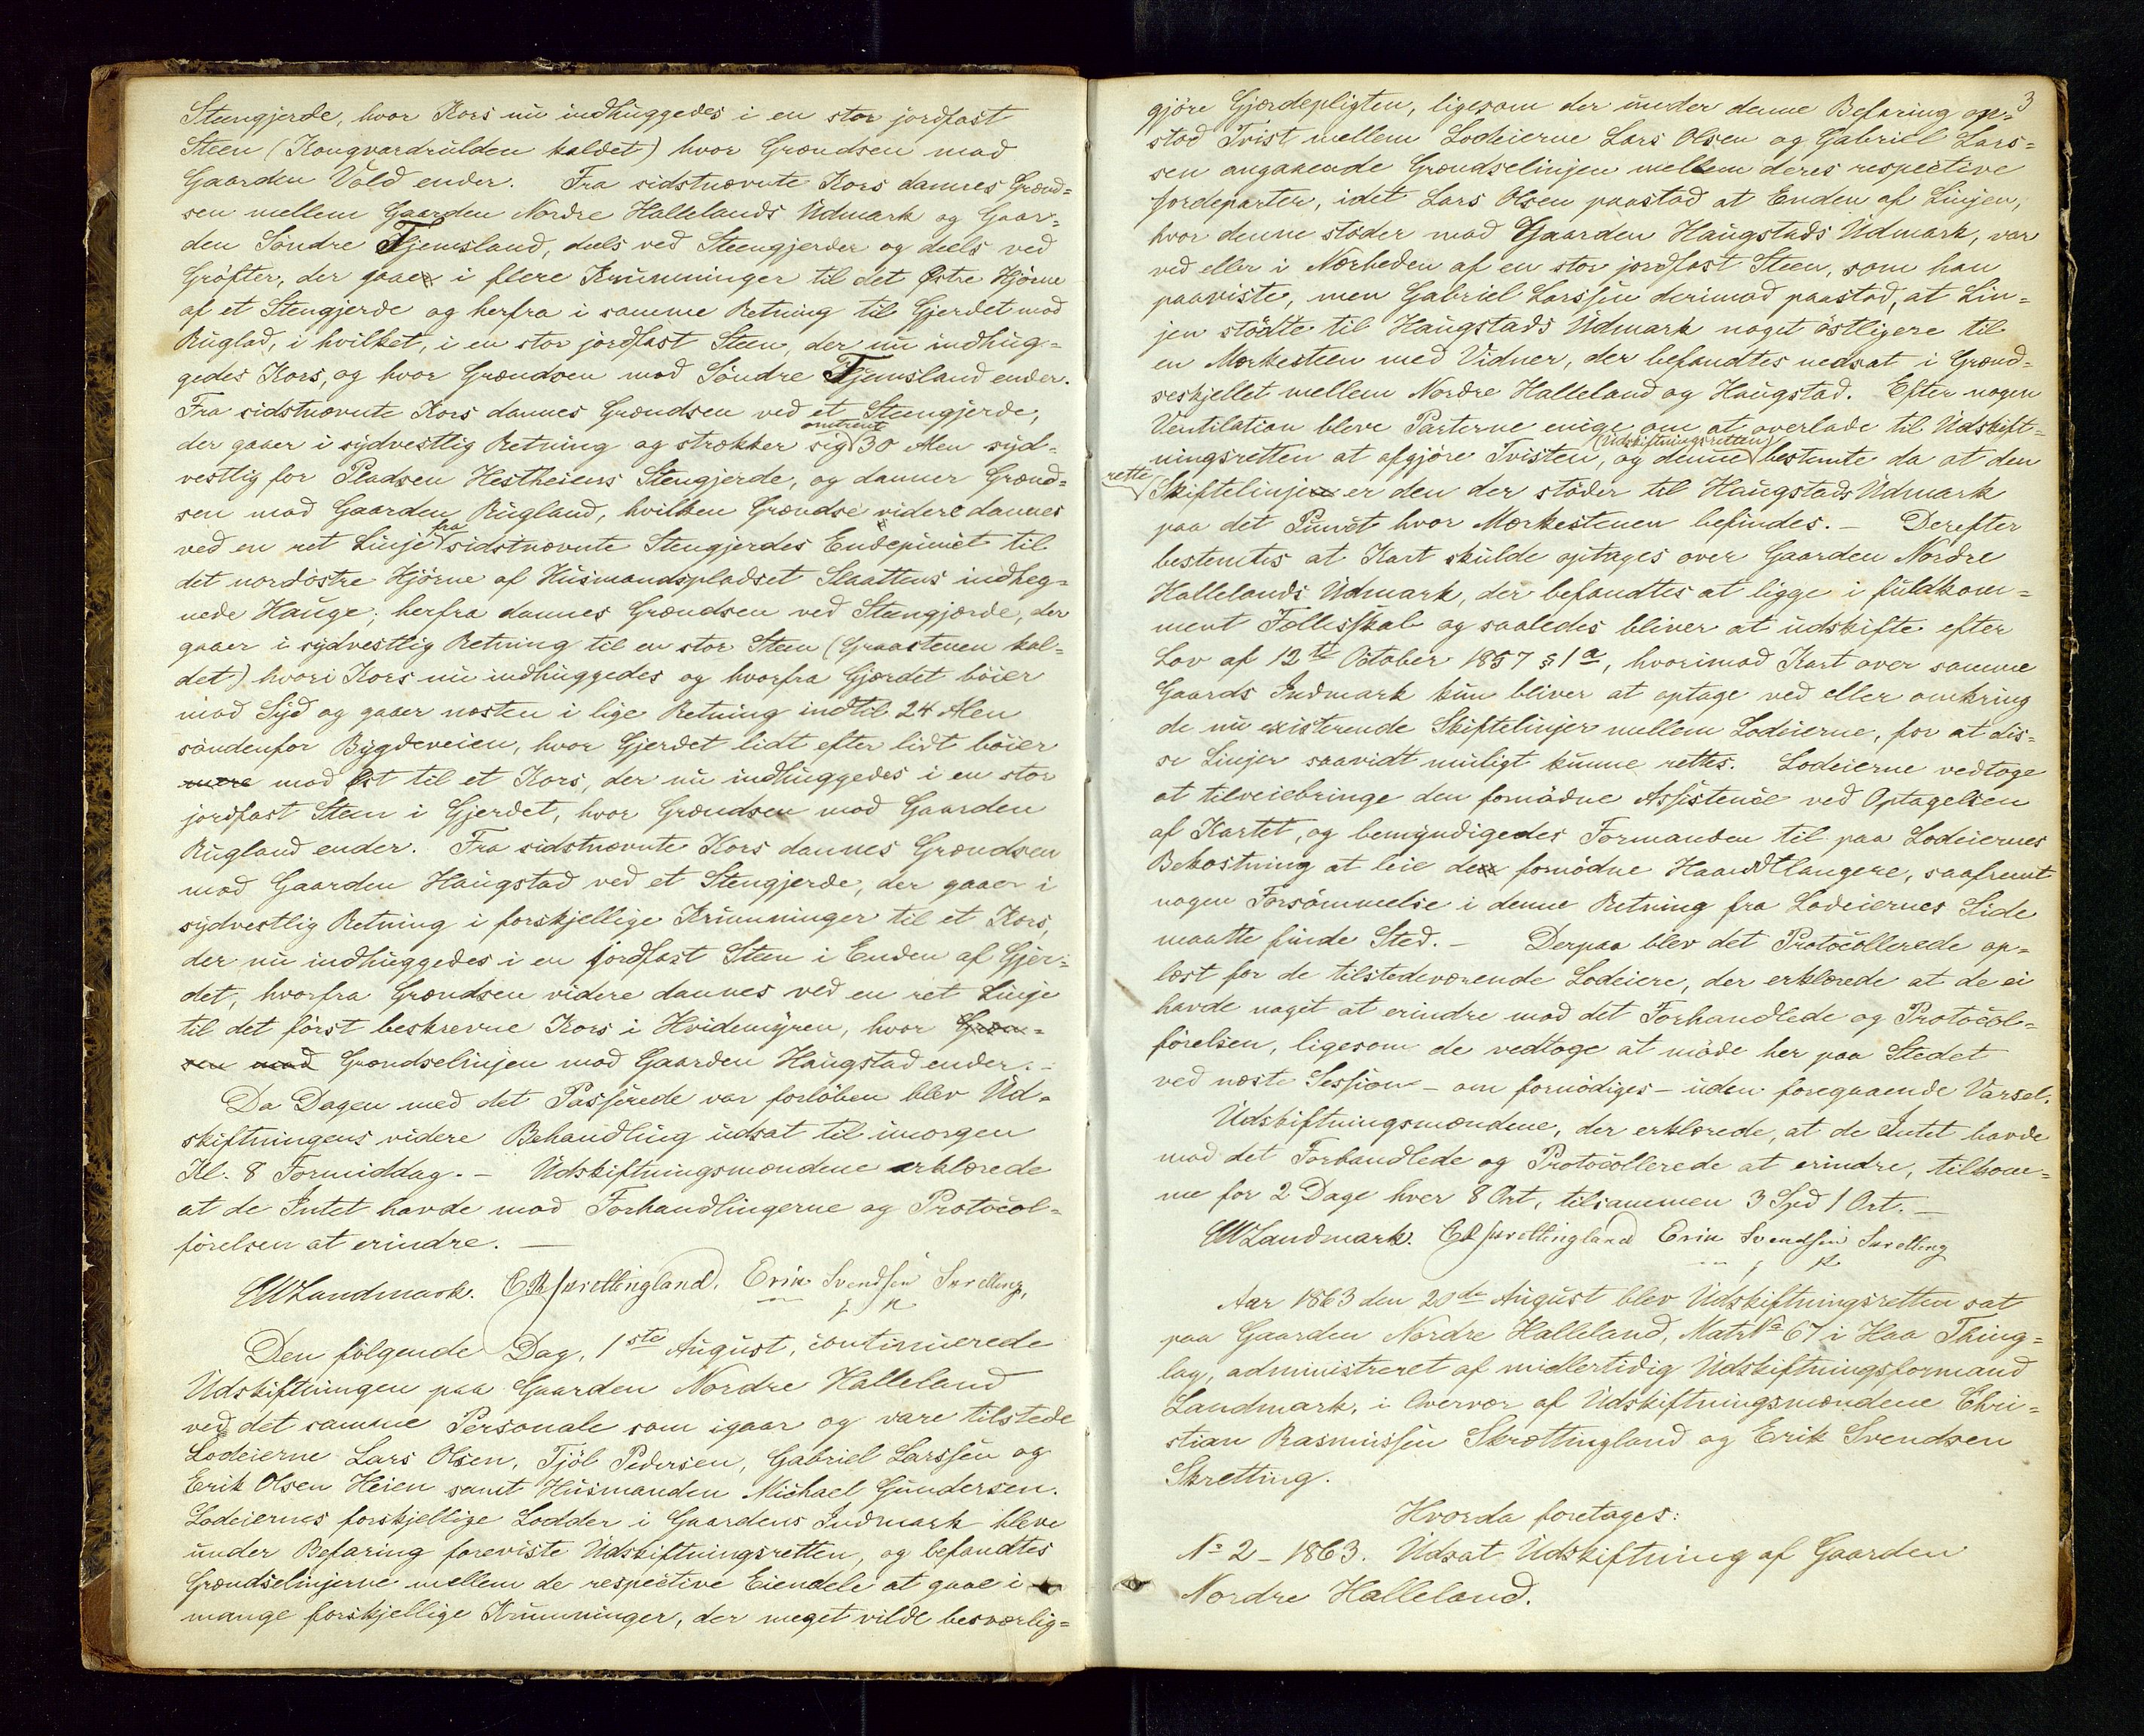 Steengjerde, hvor Kors nu indhuggedes i en stor jordfast
Steen (Kongvardrulden kaldet) hvor Grændsen mod
Gaarden Vold ender. Fra sidstnævnte Kors dannes Grænd=
sen mellem Gaarden Nordre Hallelands Udmark og Gaar=
den Søndre Tjemsland, deels ved Steengjerder og deels ved
Grøfter, der gaae i flere Krumninger til det Østre Hjørne
af et Stengjerde og herfra i samme Retning til Gjerdet mod
Ruglad, i hvilket, i en stor jordfast Steen, der nu indhug=
gedes Kors, og hvor Grændsen mod Søndre Tjemsland ender.
Fra sidstnævnte Kors dannes Grændsen ved et Stengjerde,
der gaaer i sydvestlig Retning og strækker sig omtrent 30 Alen syd=
vestlig for Pladsen Hestheiens Stengjerde, og danner Grænd=
sen mod Gaarden Rugland, hvilken Grændse videre dannes
ved en ret Linje fra sidstnævnte Stengjerdes Endepunct til
det nordøstre Hjørne af Husmandspladset Slaattens indheg=
nede Hauge; herfra dannes Grændsen ved Stengjærde, der
gaaer i sydvestlig Retning til en stor Steen (Graastenen kal=
det) hvori Kors nu indhuggedes og hvorfra Gjærdet bøier
mod Syd og gaaer næsten i lige Retning indtil 24 Alen
søndenfor Bygdeveien, hvor Gjerdet lidt efter lidt bøier
mere mod Øst til et Kors, der nu indhuggedes i en stor
jordfast Steen i Gjerdet, hvor Grændsen mod Gaarden
Rugland ender. Fra sidstnævnte Kors dannes Grændsen
mod Gaarden Haugstad ved et Stengjerde, der gaaer i
sydvestlig Retning i forskjellige Krumninger til et Kors,
der nu indhuggedes i en jordfast Steen i Enden af Gjer=
det, hvorfra Grændsen videre dannes ved en ret Linje
til det først beskrevne Kors i Hvidemyren, hvor Græn=
sen mod Grændselinjen mod Gaarden Haugstad ender. -
Da Dagen med det Passerede var forløben blev Ud=
skiftningens videre Behandling udsat til imorgen
Kl. 8 Formiddag. - Udskiftningsmændene erklærede
at de Intet havde mod Forhandlingerne og Protocol=
førelsen at erindre. —
CWLandmark. CRskrettingland. Erik Svendsen Skretting,
Den følgende Dag, 1ste August, continuerede
Udskiftningen paa Gaarden Nordre Halleland
ved det samme Personale som igaar og vare tilstede
Lodeierne Lars Olsen, Tjøl Pedersen, Gabriel Larssen og
Erik Olsen Heien samt Husmanden Michael Gundersen.
Lodeiernes forskjellige Lodder i Gaardens Indmark bleve
under Befaring foreviste Udskiftningsretten, og befandtes
Grændselinjerne mellem de respective Eiendele at gaae i
mange forskjellige Krumninger, der meget vilde besværlig=
3
gjøre Gjærdepligten, ligesom der under denne Befaring op=
stod Tvist mellem Lodeierne Lars Olsen og Gabriel Lars=
sen angaaende Grændselinjen mellem deres respective
Jordeparter, idet Lars Olsen paastod at Enden af Linjen,
hvor denne støder mod Gaarden Haugstads Udmark, var
ved eller i Nærheden af en stor jordfast Steen, som han
paaviste, men Gabriel Larssen derimod paastod, at Lin=
jen stødte til Haugstads Udmark noget østligere til
en Mærkesteen med Vidner, der befandtes nedsat i Grænd=
seskjellet mellem Nordre Halleland og Haugstad. Efter nogen
Ventilation bleve Parterne enige om at overlade til Udskift=
ningsretten at afgjøre Tvisten, og denne (Udskiftningsretten) bestemte da at den
rette Skiftelinje er den der støder til Haugstads Udmark
paa det Punct hvor Mærkestenen befindes. - Derefter
bestemtes at Kart skulde optages over Gaarden Nordre
Hallelands Udmark, der befandtes at ligge i fuldkom=
ment Fællesskab og saaledes bliver at udskifte efter
Lov af 12te October 1857 § 1 a, hvorimod Kart over samme
Gaards Indmark kun bliver at optage ved eller omkring
de nu existerende Skiftelinjer mellem Lodeierne, for at dis=
se Linjer saavidt muligt kunne rettes. Lodeierne vedtoge
at tilveiebringe den fornødne Assistence ved Optagelsen
af Kartet, og bemyndigedes Formanden til paa Lodeiernes
Bekostning at leie de fornødne Haandtlangere, saafremt
nogen Forsømmelse i denne Retning fra Lodeiernes Side
maatte finde Sted. - Derpaa blev det Protocollerede op=
læst for de tilstedeværende Lodeiere, der erklærede at de ei
havde noget at erindre mod det Forhandlede og Protocol=
førelsen, ligesom de vedtoge at møde her paa Stedet
ved næste Session - om fornødiges - uden foregaaende Varsel.
Udskiftningsmændene, der erklærede, at de Intet havde
mod det Forhandlede og Protocollerede at erindre, tilkom=
me for 2 Dage hver 8 Ort, tilsammen 3 Spd 1 Ort. —
CWLandmark. CRskrettingland Erik Svendsen Skretting
Aar 1863 den 20de August blev Udskiftningsretten sat
paa Gaarden Nordre Halleland, Matr No 67 i Haa Thing=
lag, administreret af midlertidig Udskiftningsformand
Landmark, i Overvær af Udskiftningsmændene Chri=
stian Rasmussen Skrættingland og Erik Svendsen
Skretting.
Hvorda foretages:
No 2 - 1863. Udsat Udskiftning af Gaarden
Nordre Halleland.